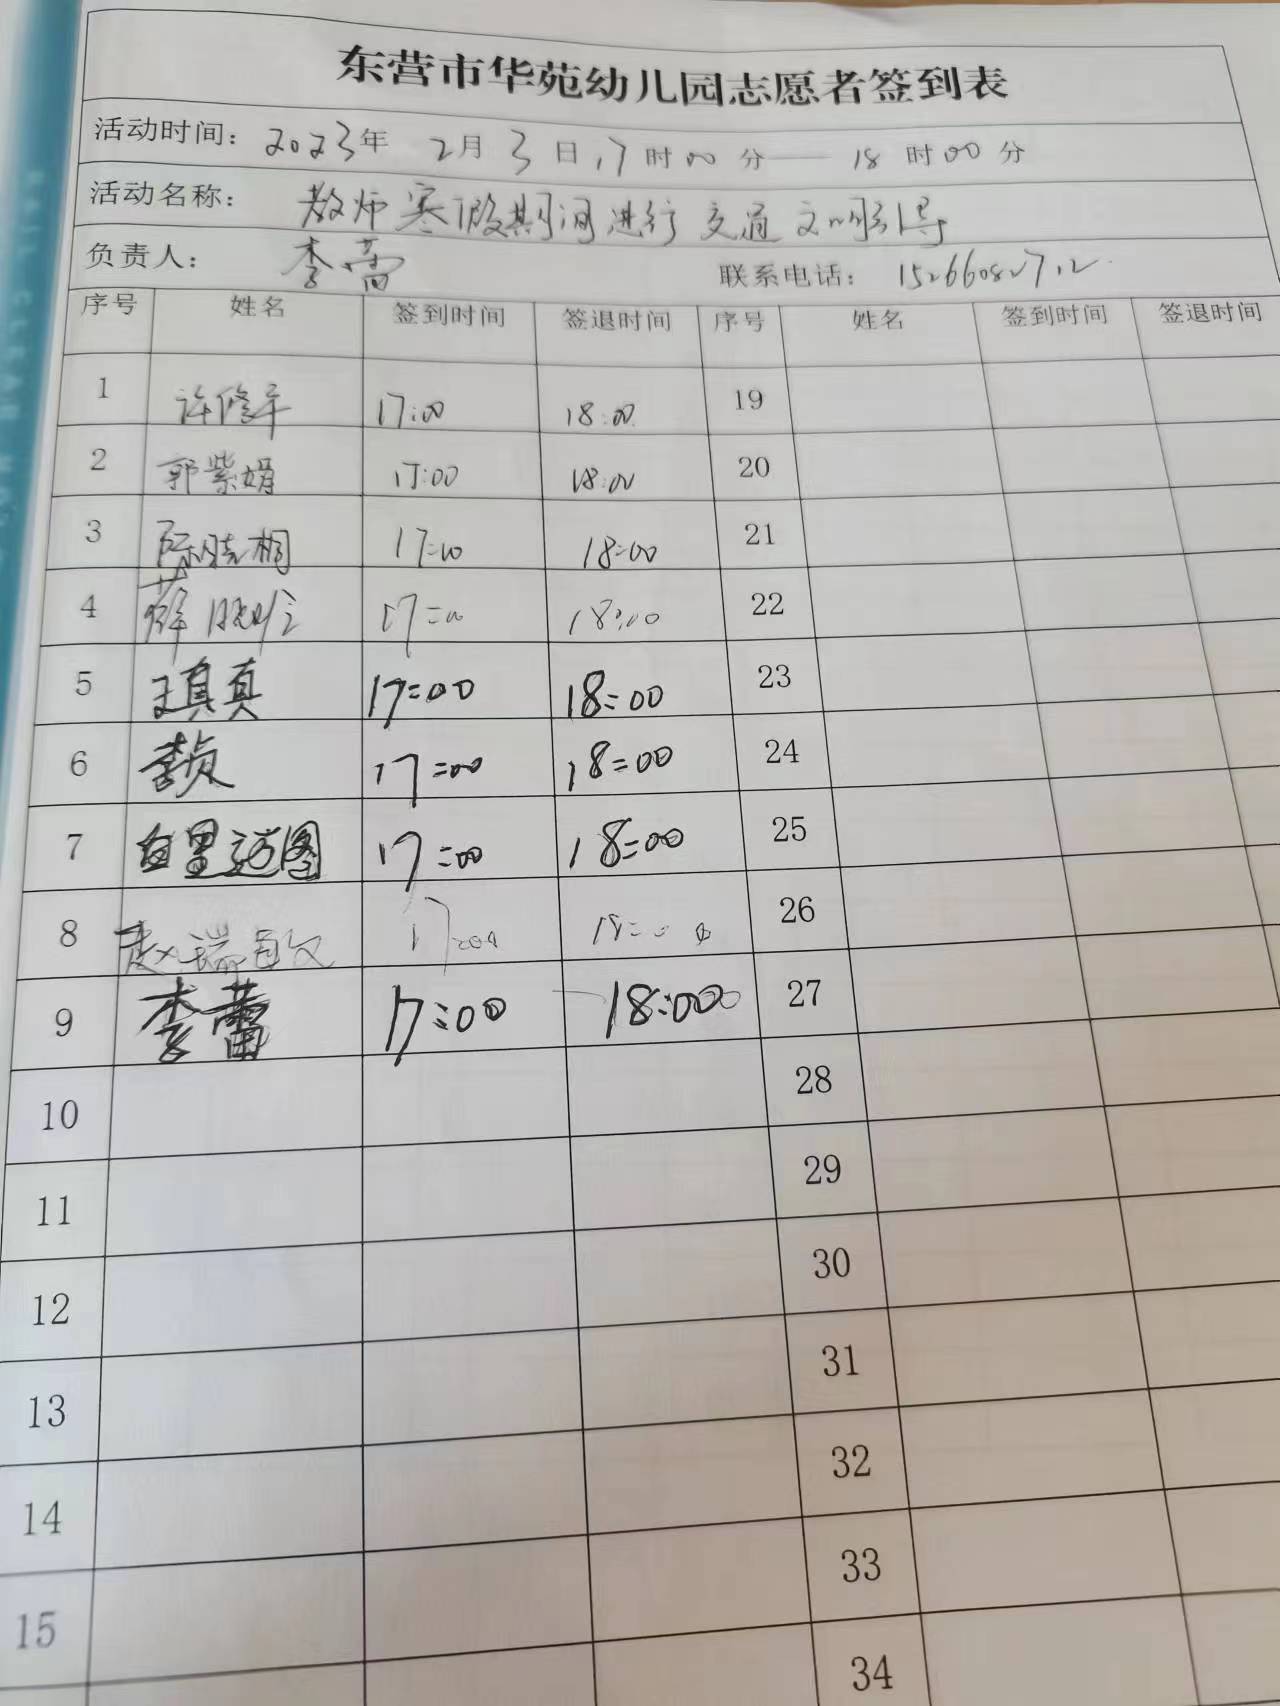 东营市华苑幼儿园志愿者签到表
活动时间：2023年 2月 3日 17时00分—— 18时00分
活动名称： 教师寒假期间进行交通文明引导
负责人： 李蕾 联系电话： 15266082712
序号 姓名 签到时间 签退时间 序号 姓名 签到时间 签退时间
1 许修平 17:00 18:00 19
2 郭紫娟 17:00 18:00 20
3 陈晓桐 17:00 18:00 21
4 薛晓 17:00 18:00 22
5 王真真 17:00 18:00 23
6 17:00 18:00 24
7 17:00 18:00 25
8 赵瑞 17:00 18:00 26
9 李蕾 17:00 18:00 27
10 28
11 29
12 30
13 31
14 32
15 33
34